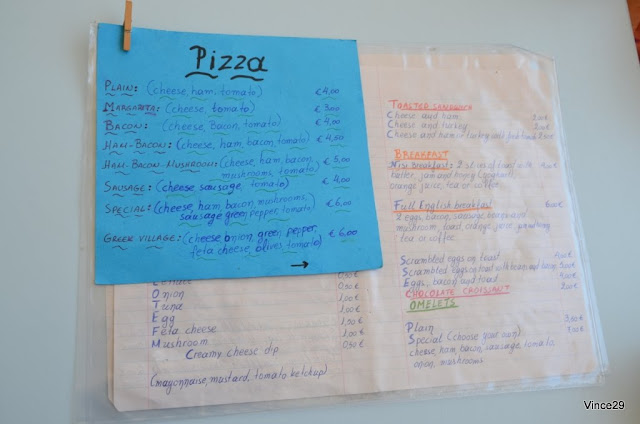 Pizza
PLAIN: (cheese, ham, tomato) €4,00
MARGARETA: (cheese, tomato) €3,00
BACON: (cheese, Bacon, tomato) €4,00
HAM-BACON: (cheese, ham, bacon, tomato) €4,50
HAM-BACON-MUSHROOM: (cheese, ham, bacon, €5,00
mushrooms, tomato)
SAUSAGE: (cheese sausage, tomato) €4,00
SPECIAL: (cheese, ham, bacon, mushrooms, €6,00
sausage green pepper, tomato)
GREEK VILLAGE: (cheese onion, green pepper, €6,00
feta cheese, olives, tomato)
→
Onion 1,00
Tuna 1,00
Egg 1,00
Feta cheese 1,00
Mushroom 0,50
Creamy cheese dip
(mayonnaise, mustard, tomato ketchup)
TOASTED SANDWICH
Cheese and ham
Cheese and turkey
Cheese and ham or turkey and
BREAKFAST
breakfast: 2 toast with
butter, jam and honey
orange juice, tea or coffee
Full English breakfast
2 eggs, bacon, sausage,
mushroom, toast, orange juice,
tea or coffee
Scrambled eggs on toast
Scrambled eggs on toast with
Eggs, bacon and toast
CHOCOLATE CROISSANT
OMELETS
Plain
Special (choose your own)
cheese, ham, bacon, sausage, tomato,
onion, mushrooms
Vince29